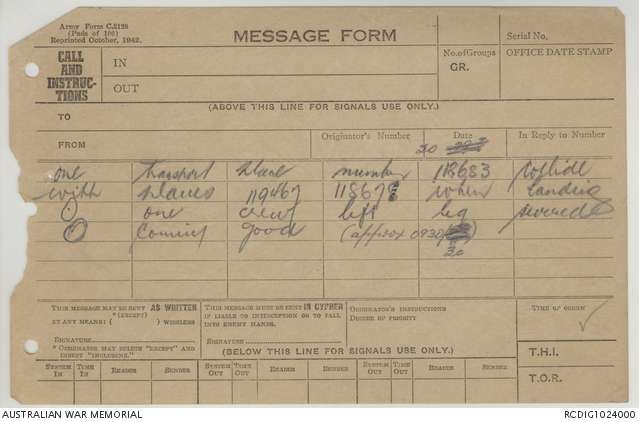 Army Form C.2128
(Pads of 100)
Reprinted October, 1942.
MESSAGE FORM
Serial No.
CALL AND INSTRUC-TIONS
IN
OUT
No. of Groups
GR.
OFFICE DATE STAMP
(ABOVE THIS LINE FOR SIGNALS USE ONLY.)
TO
FROM
Originator's Number
Date
30
In Reply to Number
one transport plane number 118683 collide
with planes 119467 118678 when landing
one crew left leg severed
coming good (approx 0930
30
THIS MESSAGE MAY BE SENT AS WRITTEN
"(EXCEPT)
BY ANY MEANS ( ) WIRELESS
SIGNATURE
"ORIGINATOR MAY DELETE "EXCEPT" AND
INSERT "INCLUDING."
THIS MESSAGE MUST BE SENT IN CYPHER
IF LIABLE TO INTERCEPTION OR TO FALL
INTO ENEMY HANDS.
SIGNATURE
ORIGINATOR'S INSTRUCTIONS
DEGREE OF PRIORITY
TIME OF ORIGIN
(BELOW THIS LINE FOR SIGNALS USE ONLY.)
T.H.I.
T.O.R.
SYSTEM IN TIME IN READER SENDER SYSTEM OUT TIME OUT READER SENDER SYSTEM OUT TIME OUT READER SENDER
AUSTRALIAN WAR MEMORIAL
RCDIG1024000